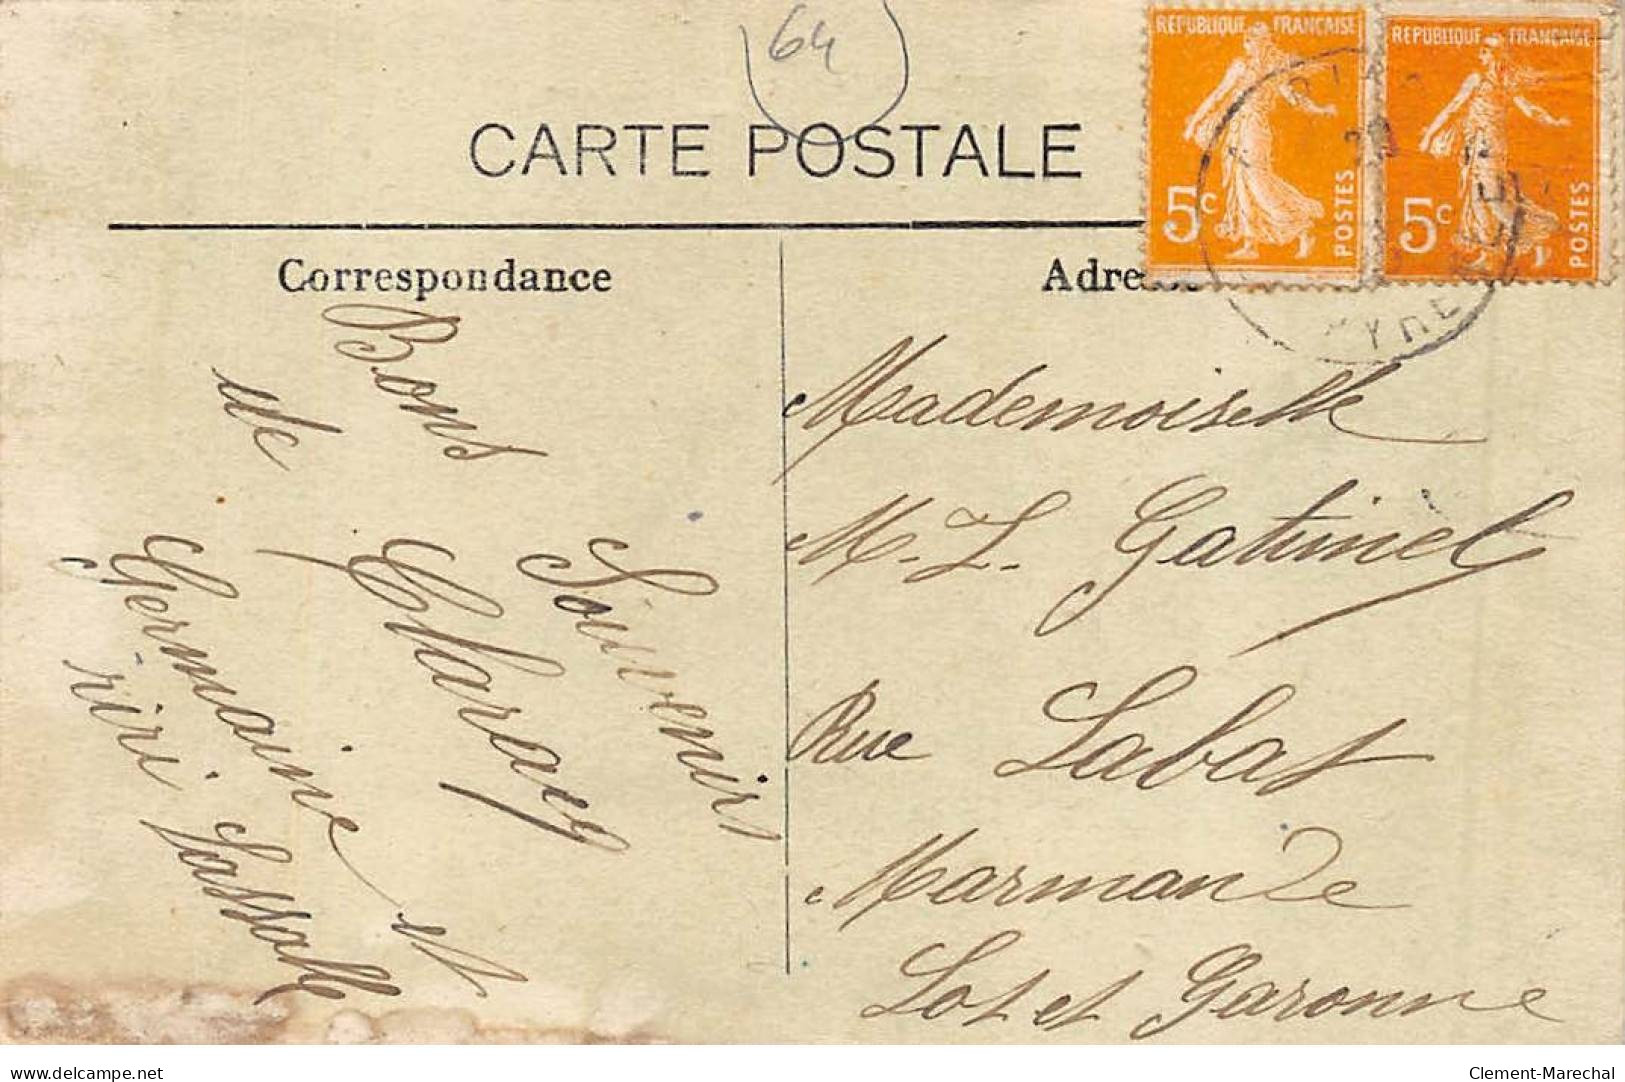 64
REPUBLIQUE FRANÇAISE
5c
POSTES
REPUBLIQUE FRANÇAISE
5c
POSTES
CARTE POSTALE
Correspondance
Adresse
Bons Souvenirs
de Claracq
Germaine et
riri Lassalle
Mademoiselle
M. L. Gatinel
Rue Labat
Marmande
Lot et Garonne
delcampe.net
Clement-Marechal